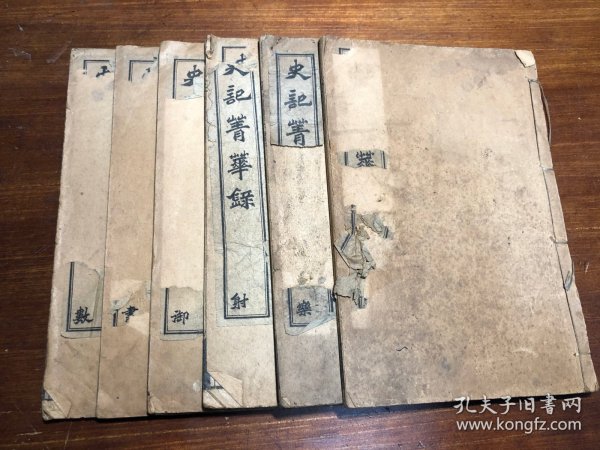 史
史記菁
樂
史記菁華錄
射
史
御
書
數
孔夫子旧書网
www.kongfz.com